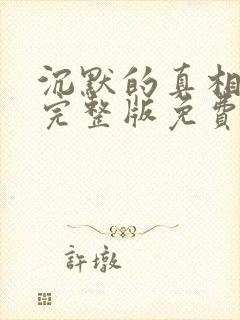 沉默的真相
完整版免費
許墩